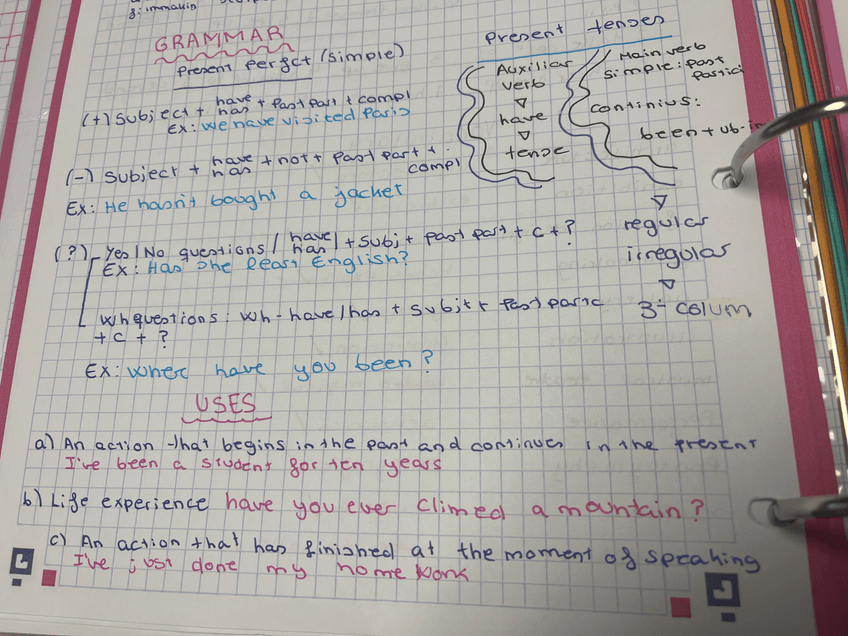 GRAMMAR
present perfct (simple)
(+) Subject + have + Past part + compl
has
Ex: We have visited Paris
(-) Subject + have + not + past part +
has
compl
Ex: He hasn't bought a jacket
(?) Yes/No questions / have / + Subj + past part + c + ?
has
Ex: Has she least English?
Wh questions: Wh - have/has + subjt + past partic
+ c + ?
Ex: Wher have you been?
present tenses
Auxiliar
verb
have
tense
Main verb
simple: past
partici
continius:
been + vb-in
regular
irregular
3º colum
USES
a) An action that begins in the past and continues in the present
I've been a student for ten years
b) Life experience have you ever climed a mauntain?
c) An action that has finished at the moment of speaking
I've just done my home work